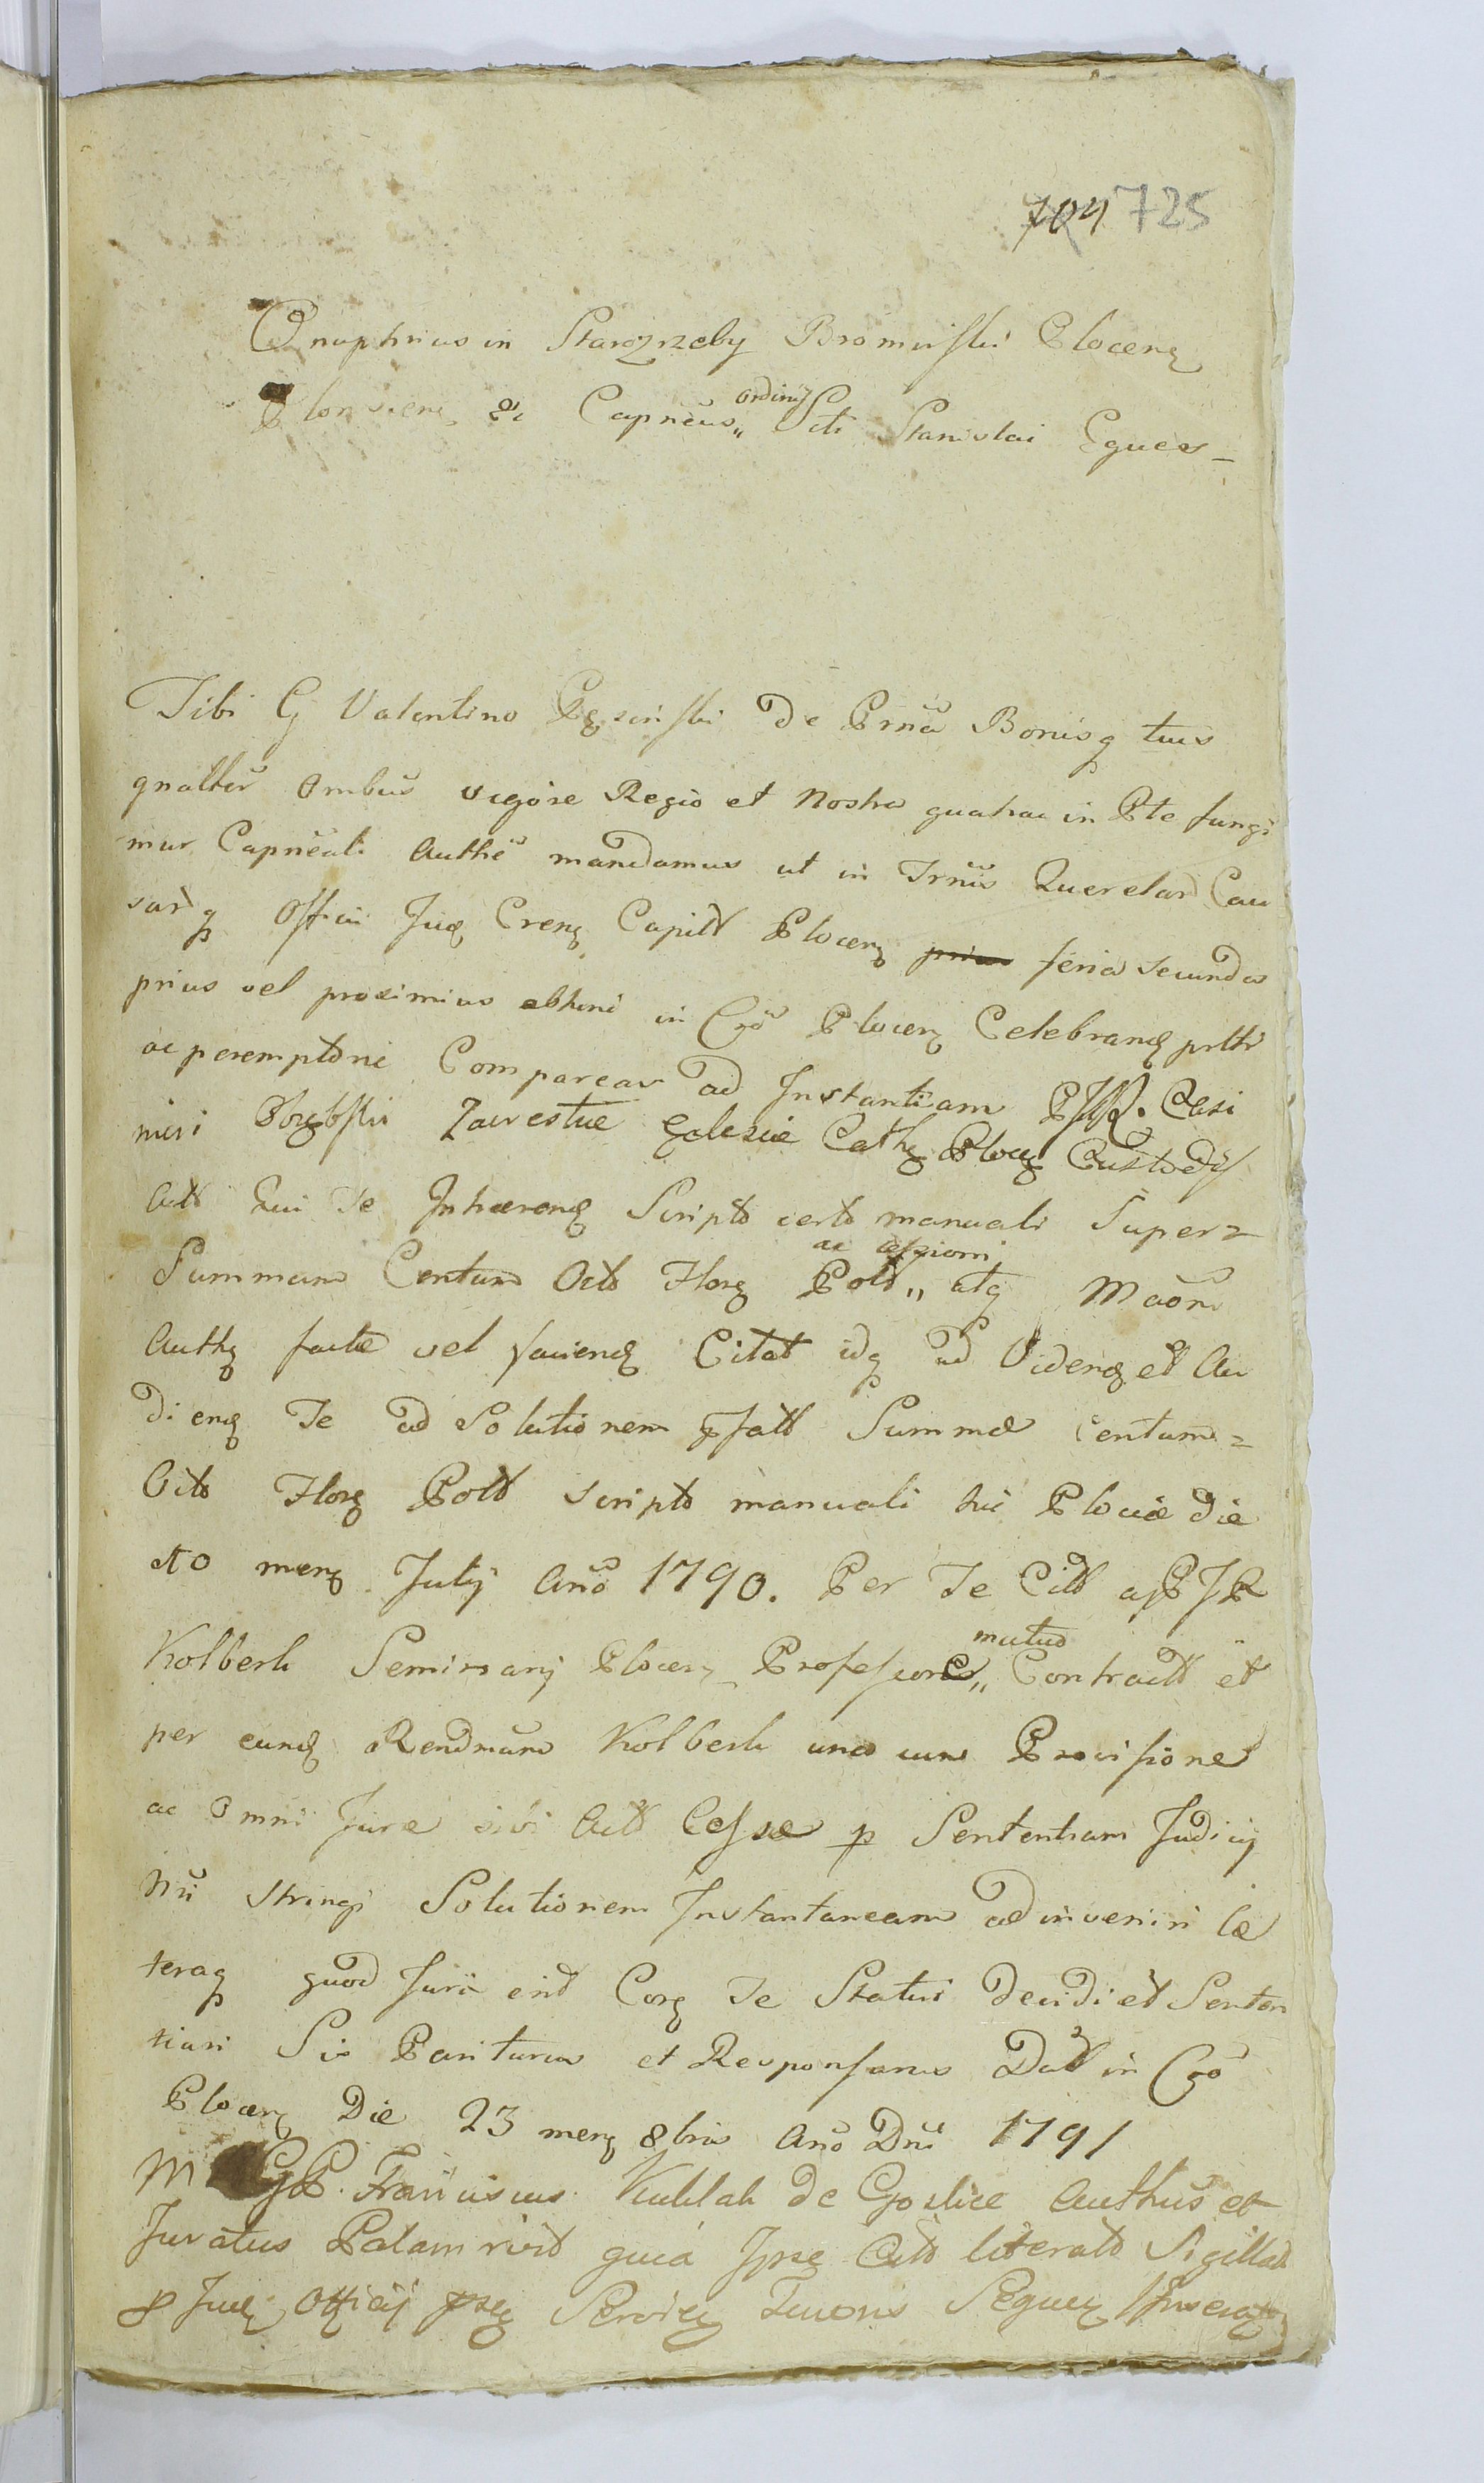 704 725
Onuphrius in Starozrzeby Bromirski Plocen
Plonscen & Capneus ordinis Scti Stanislai Eques
Tibi G Valentino de Prna Bonisq tuis
gnalter ombus vigore Regio et Nostra qua hac in Pte fungi
mur Capneali Authe mandamus ut in Trnis Querelar Cau
sarq Officii Jud Cren Capill Plocen feria secunda
prius vel proximius abhinc in Cgo Plocen Celebrand pltr
ac peremptorie Compareas ad Instantiam PJR. Casi
miri Zawestue Eclesiæ Cath Plocen Custodis
Act Qui Te Inhærend Scripto certo manuali Super
Summam Centum Octo Flor Pold ac cessioni atq Maone
Auth factæ vel faciend Citat idq ad Videnð et Au
diend Te ad Solutionem pfatt Summæ centum
Octo Flor Pold scripto manuali hic Plociæ die
10 mens Julij Ano 1790. Per Te Citt a PJR
Kolberk Seminarij Plocen Professore mutuo Contractt et
per eund Rendmum Kolberk una cum Provisione
ac Omni Jure sibi Actt Cessæ p Sententiam Judicij
Nri Stringi Solutionem Instantaneam adinveniri Cæ
teraq quod Juris erit Cor Te Statui decidi et Senten
tiari Sis Pariturus et Responsurus Datt in Cgo
Plocen Die 23 mens 8bris Ano Dni 1791
M GP. Franciscus Kuklak de Goslice Authus et
Juratus Palam rect quia Ipse Citt literatt Sigillatt
p Jud Officij psen Servien Tenoris Sequen